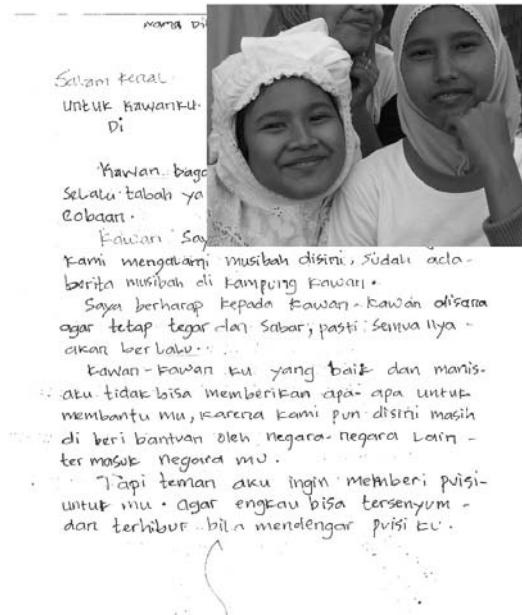 Nama Di
Salam Kenal
Untuk Kawanku.
Di
Kawan baga
Selalu tabah ya
Cobaan.
Kawan Say
Kami mengalami musibah disini, Sudah ada-
berita musibah di kampung Kawan.
Saya berharap kepada kawan-kawan disana
agar tetap tegar dan Sabar, pasti Semua Nya-
akan berlalu...
Kawan-kawan ku yang baik dan manis.
aku tidak bisa memberikan apa-apa untuk
membantu mu, karena kami pun disini masih
di beri bantuan oleh negara-negara Lain -
termasuk negara mu.
Tapi teman aku ingin memberi puisi-
untuk mu. agar engkau bisa tersenyum -
dan terhibur bila mendengar puisi ku.